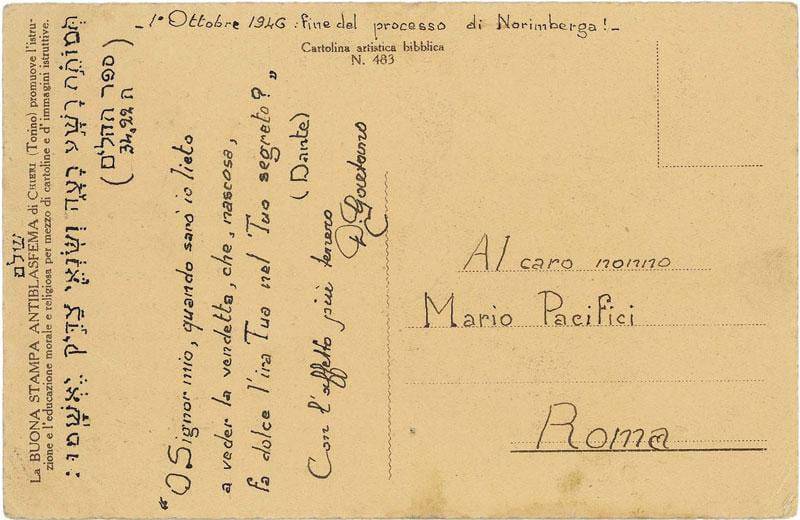 - 1° Ottobre 1946 : fine del processo di Norimberga! -
Cartolina artistica bibblica
N. 483
שלם
La BUONA STAMPA ANTIBLASFEMA di CHIERI (Torino) promuove l'istru-
zione e l'educazione morale e religiosa per mezzo di cartoline e d'immagini istruttive.
תְּמוֹתֵת רָשָׁע רָעָה וְשֹׂנְאֵי צַדִּיק יֶאְשָׁמוּ:
(ספר תהלים
34.22 ה)
"O Signor mio, quando sarò io lieto
a veder la vendetta, che, nascosa,
fa dolce l'ira Tua nel Tuo segreto?"
(Dante)
Con l'affetto più tenero
Gaetano
Al caro nonno
Mario Pacifici
Roma